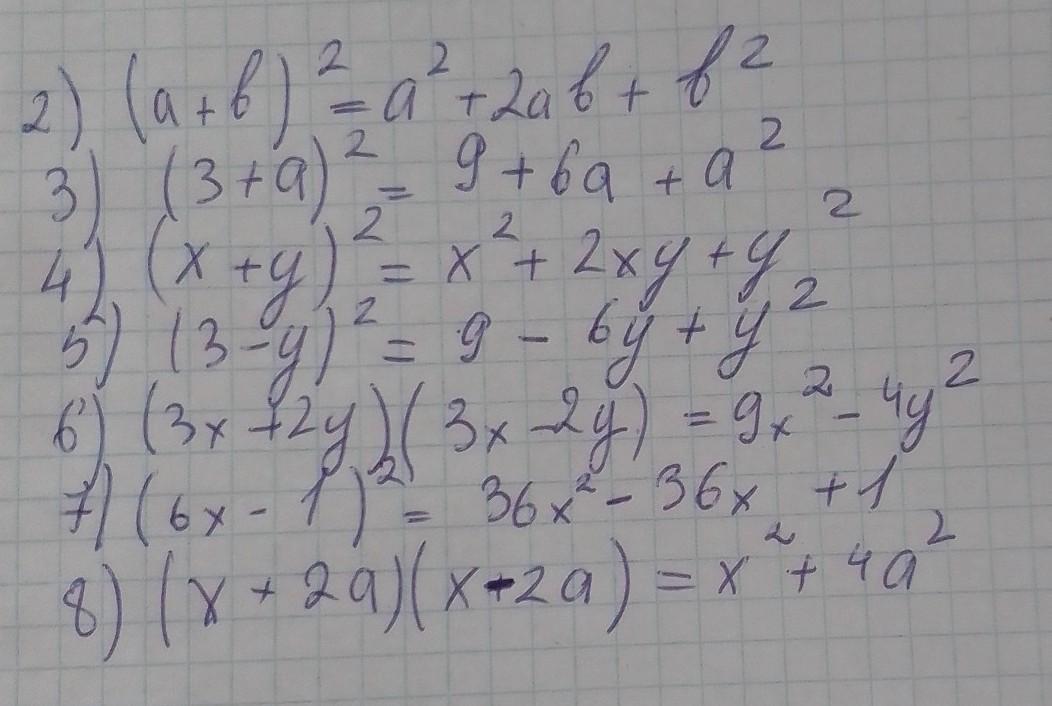 2) (a+b)² = a² + 2ab + b²
3) (3+a)² = 9 + 6a + a²
4) (x+y)² = x² + 2xy + y²
5) (3-y)² = 9 - 6y + y²
6) (3x+2y)(3x-2y) = 9x² - 4y²
7) (6x-1)² = 36x² - 36x + 1
8) (x+2a)(x-2a) = x² + 4a²